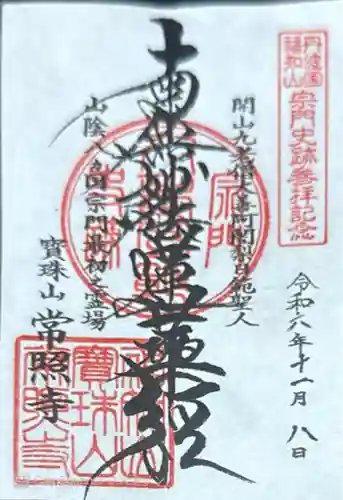 丹波国
福知山
宗門史跡参拝記念
令和六年十一月八日
開山九老僧大善阿闍梨日範聖人
南無妙法蓮華経
山陰八ヶ国宗門最初之霊場
寶珠山常照寺
宗門
史跡
寶珠山